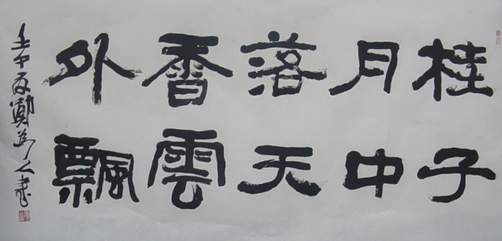 桂子
月中
落天
香雲
外飄
壬午夏鄭書